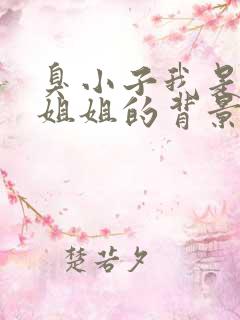 臭小子我是
姐姐的背景
楚若夕